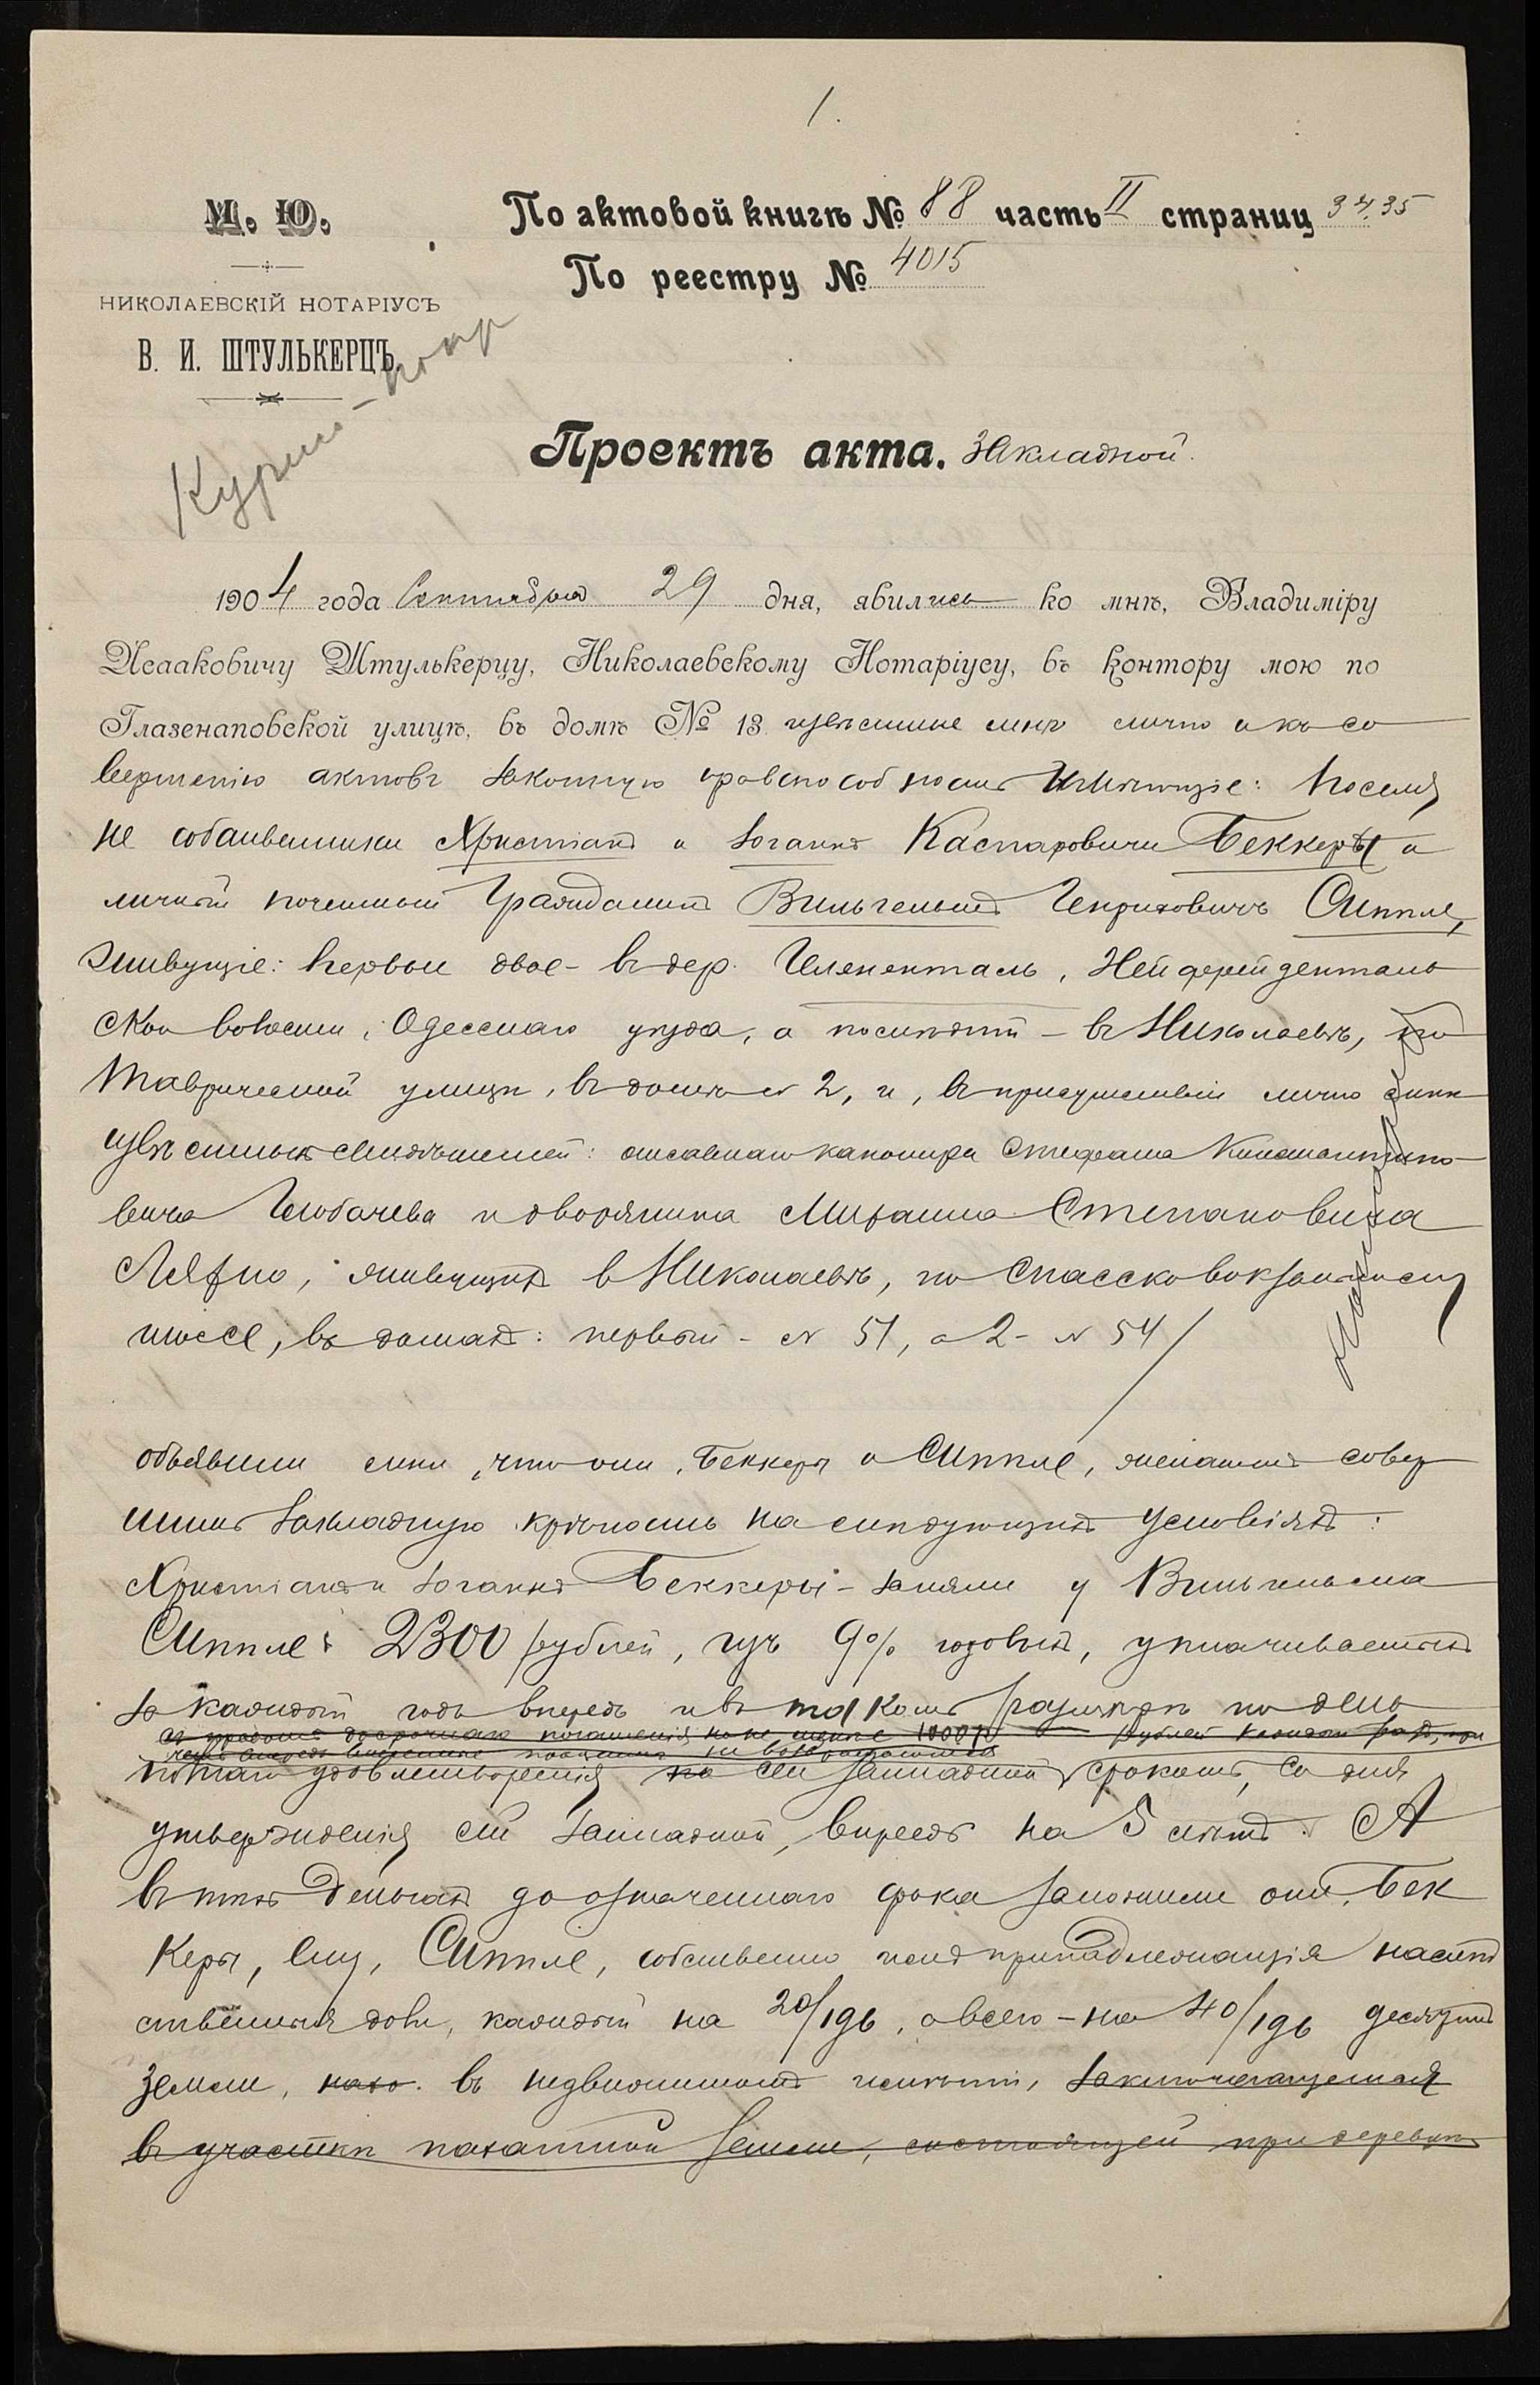 1.
М. Ю.
По актовой книгѣ № 88 часть II страниц 34.35
По реестру № 4015
НИКОЛАЕВСКІЙ НОТАРІУСЪ
В. И. ШТУЛЬКЕРЦЪ.
Проектъ акта. Закладной.
1904 года Сентября 29 дня, явились ко мнѣ, Владиміру
Исааковичу Штулькерцу, Николаевскому Нотаріусу, въ контору мою по
Глазенаповской улицѣ, въ домѣ № 13 извѣстные мнѣ лично и къ со
вершенію актовъ законную правоспособность имѣющіе: поселя
не собственники Христіанъ и Іоганнъ Каспаровичи Беккеры и
личный почетный Гражданинъ Вильгельмъ Генриховичъ Сиппле,
живущіе: первые двое - въ дер. Гелененталь, Нейфрейденталь
ской волости, Одесскаго уѣзда, а послѣдній - въ Николаевѣ, по
Таврической улицѣ, въ домѣ № 2, и, въ присутствіи лично мнѣ
извѣстныхъ свидѣтелей: отставнаго канонира Стефана Константино
вича Глобачева и дворянина Михаила Степановича
живущихъ въ Николаевѣ, по Спассковокзальному
шоссе, въ домахъ: первый - № 51, а 2 - № 54
объявили мнѣ, что они, Беккеры и Сиппле, желаютъ совер
шить закладную крѣпость на слѣдующихъ условіяхъ:
Христіанъ и Іоганнъ Беккеры - заняли у Вильгельма
Сиппле 2300 рублей, изъ 9% годовыхъ, уплачиваемыхъ
за каждый годъ впередъ и въ такомъ размѣрѣ по день
съ правомъ досрочнаго погашенія но не менѣе 1000 р рублей каждый разъ, при
чемъ впередъ внесенные проценты не возвращаются
полнаго удовлетворенія по сей закладной, срокомъ, со дня
утвержденія сей закладной, впредь на 5 лѣтъ. А
въ тѣхъ деньгахъ до означеннаго срока заложили они, Бек
керы, ему, Сиппле, собственно имъ принадлежащія наслѣд
ственныя доли, каждый на 20/196, а всего - на 40/196 десятинъ
земли, нахо. въ недвижимомъ имѣніи, заключающемся
въ участкѣ пахатной земли, состоящей при деревнѣ